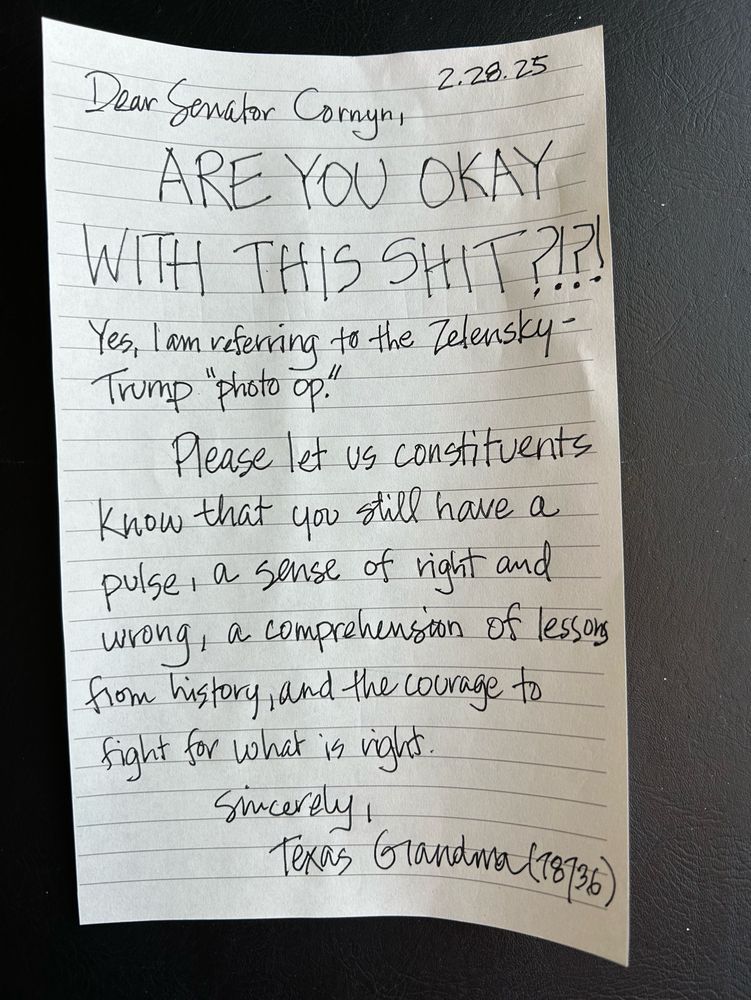 2.28.25
Dear Senator Cornyn,
ARE YOU OKAY
WITH THIS SHIT?!?!
Yes, I am referring to the Zelensky-
Trump "photo op."
Please let us constituents
know that you still have a
pulse, a sense of right and
wrong, a comprehension of lessons
from history, and the courage to
fight for what is right.
Sincerely,
Texas Grandma (78736)